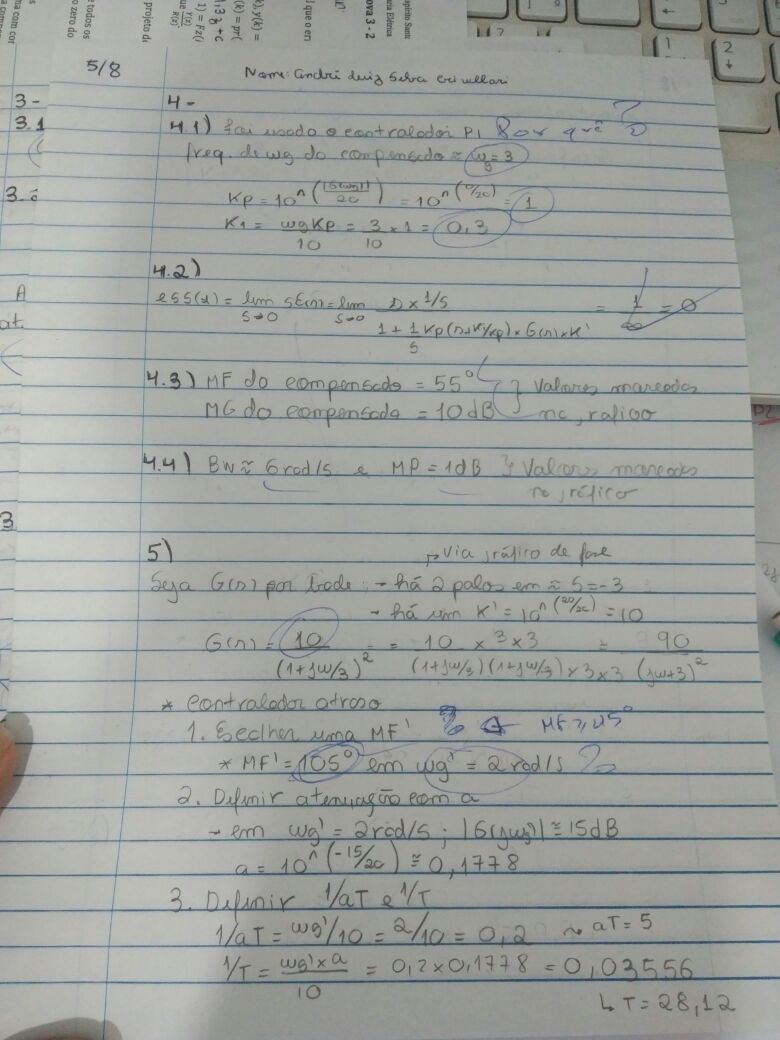 5/8
Nome: André Luiz Silva
3 -
3.1
3
4 -
4.1) Foi usado o controlador PI Por quê ?
freq. de wg do compensado ≈ wg = 3
Kp = 10^(|G(wg)|/20) = 10^(0/20) = 1
K1 = wgKp/10 = 3/10 × 1 = 0,3
4.2)
ess(1) = lim s→0 sE(s) = lim s→0 s × 1/s / (1 + 1/s Kp(s+K1/Kp) × G(s) × K') = 1/∞ = 0
4.3) MF do compensado = 55° } Valores marcados
MG do compensado = 10 dB no gráfico
4.4) BW ≈ 6 rad/s e MP = 1dB } Valores marcados
no gráfico
5)
↱ Via gráfico de fase
Seja G(s) por bode: - há 2 polos em ≈ S = -3
- há um K' = 10^(20/20) = 10
G(s) = 10/(1+jw/3)² = 10 × 3 × 3/(1+jw/3)(1+jw/3) × 3 × 3 = 90/(jw+3)²
* controlador atraso
1. Escolher uma MF' ? ← MF ≥ 45°
* MF' = 105° em wg' = 2 rad/s ?
2. Definir atenuação com a
- em wg' = 2 rad/s; |G(jwg)| ≅ 15 dB
a = 10^(-15/20) ≅ 0,1778
3. Definir 1/aT e 1/T
1/aT = wg'/10 = 2/10 = 0,2 ~ aT = 5
1/T = wg' × a/10 = 0,2 × 0,1778 = 0,03556
↳ T = 28,12